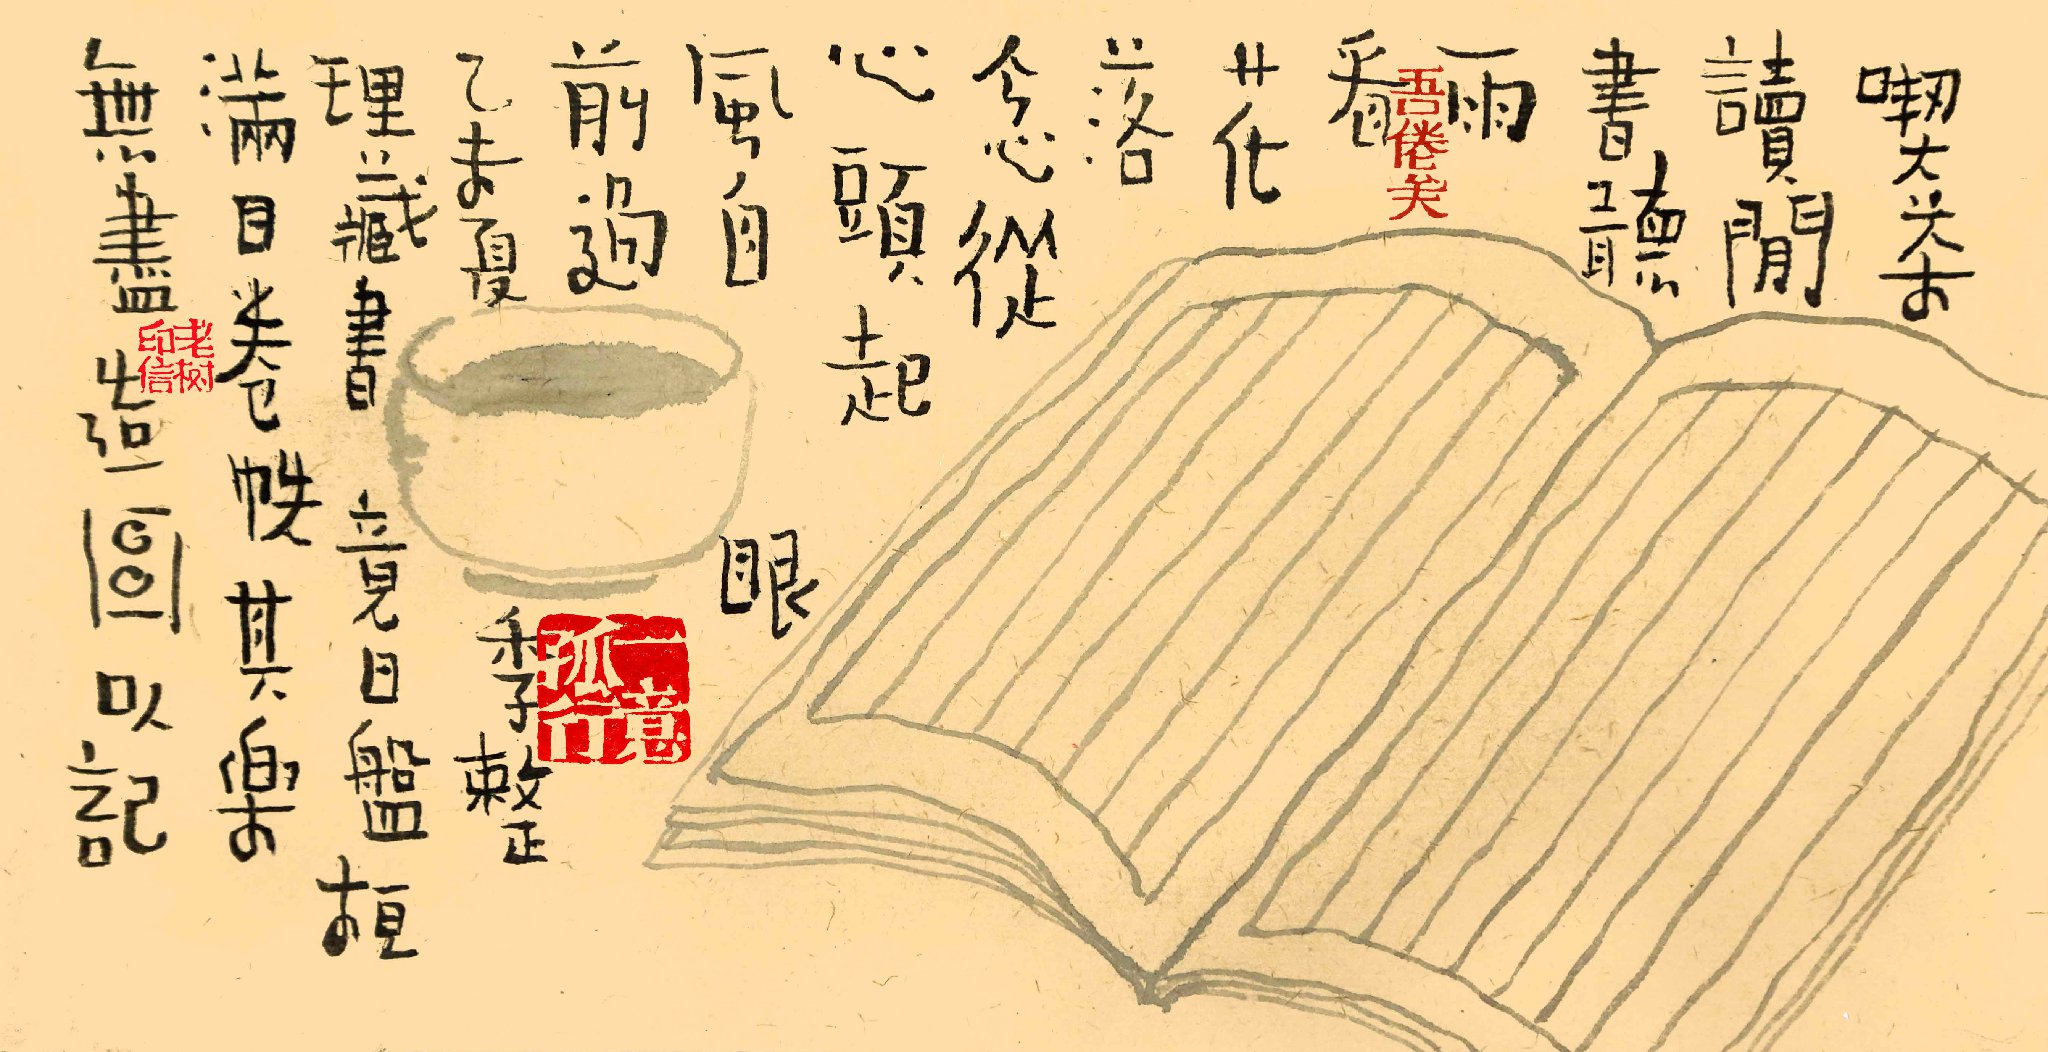 喫茶
讀閒
書聽
雨
看
花
落
念從
心頭起
風自眼
前過
乙未夏季子整
理藏書竟日盤桓
滿目卷帙其樂
無盡造圖以記
吾倦矣
一意孤行
老树印信